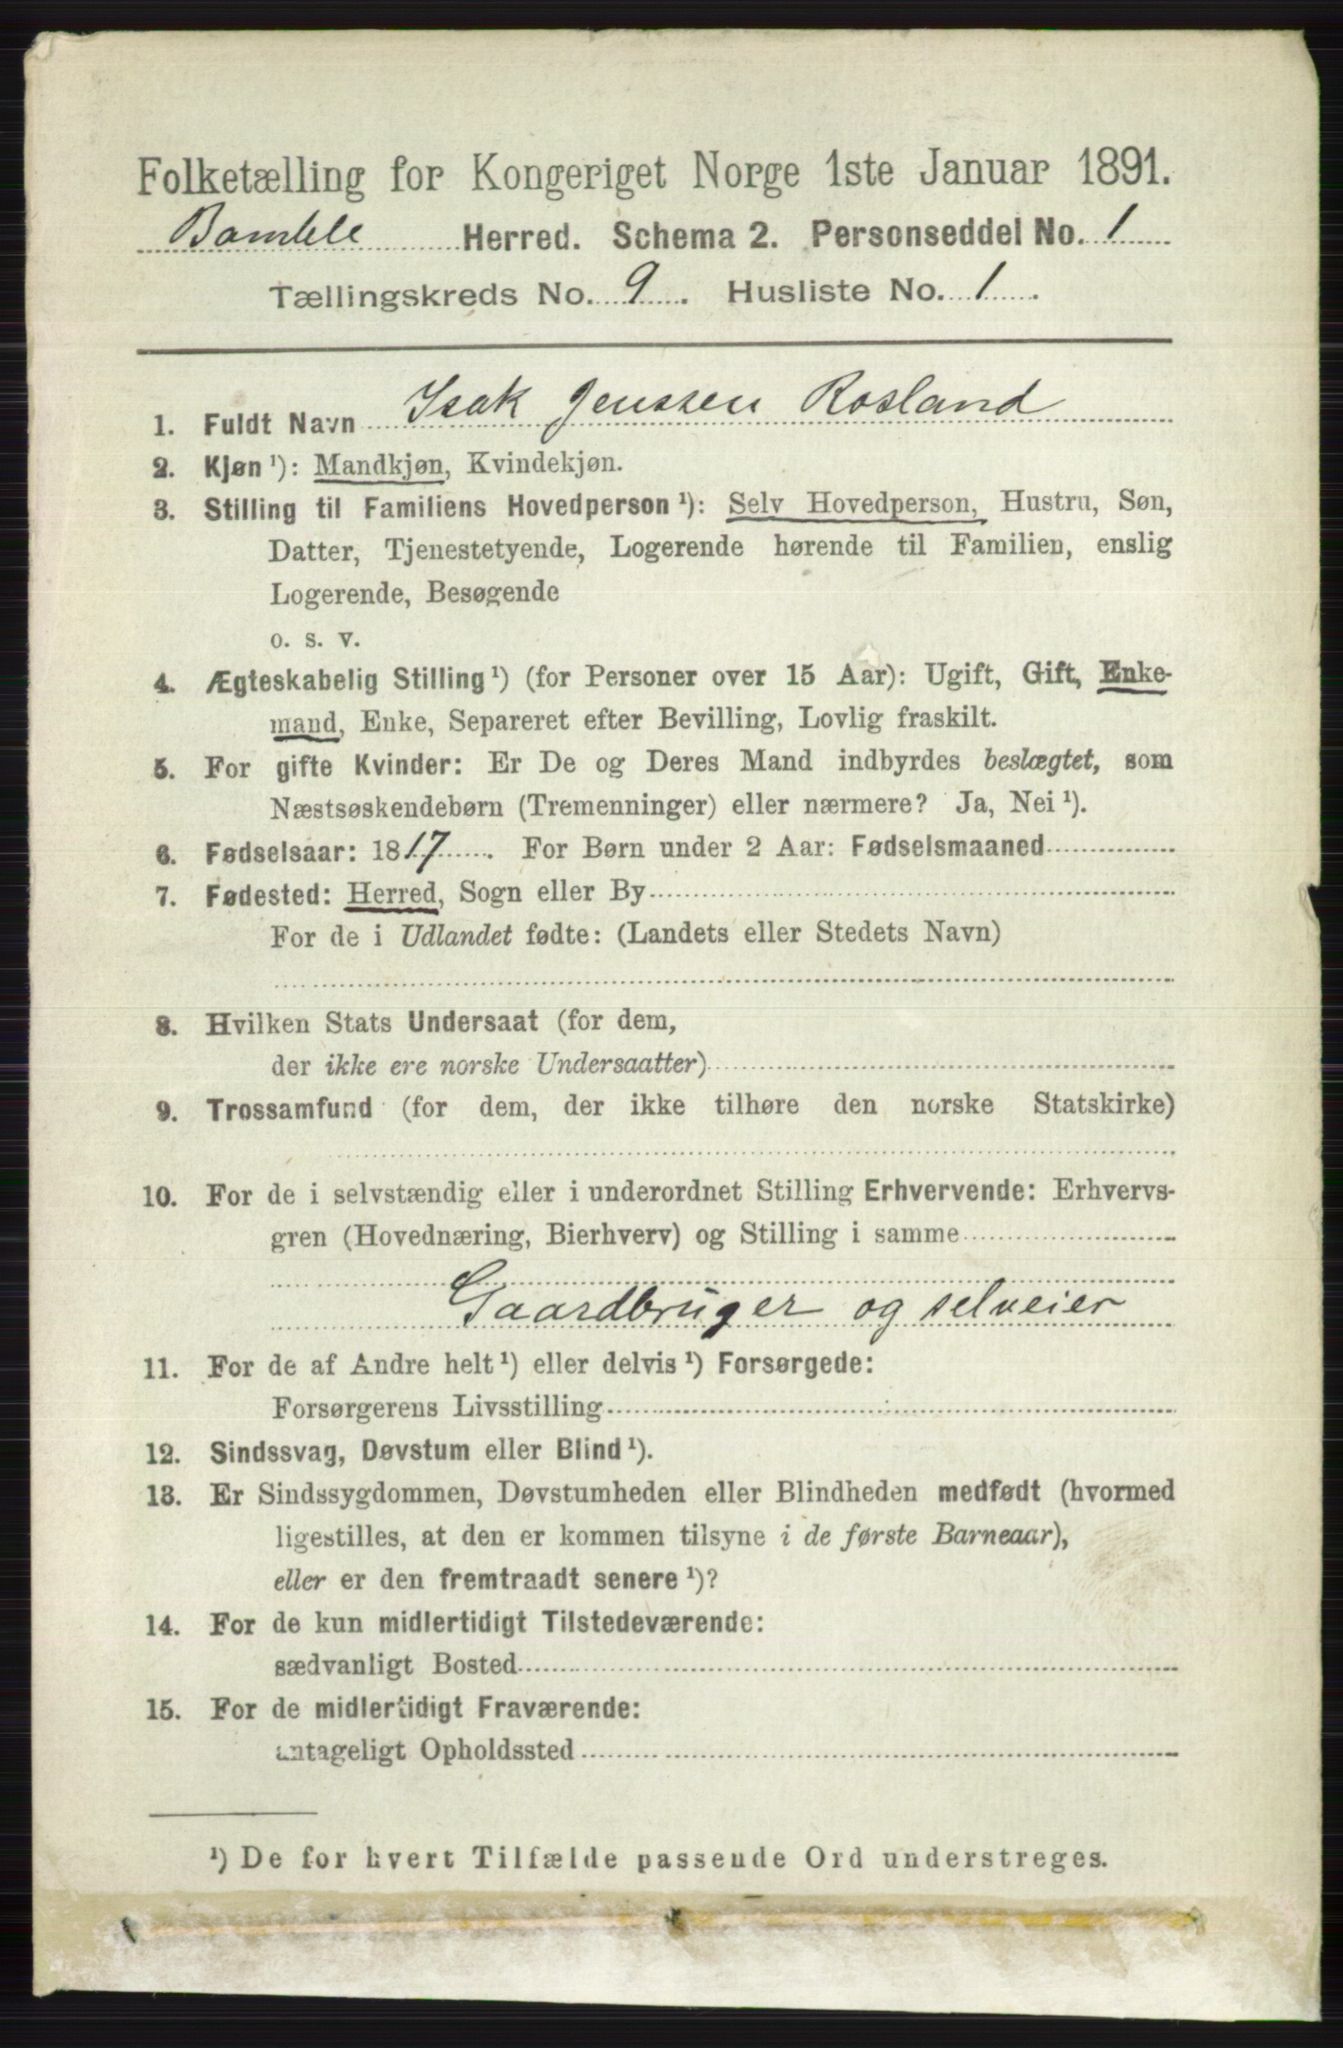 Folketælling for Kongeriget Norge 1ste Januar 1891.
Bamble Herred. Schema 2. Personseddel No. 1
Tællingskreds No. 9. Husliste No. 1.
1. Fuldt Navn Isak Jenssen Rosland
2. Kjøn ¹): Mandkjøn, Kvindekjøn.
3. Stilling til Familiens Hovedperson ¹): Selv Hovedperson, Hustru, Søn,
Datter, Tjenestetyende, Logerende hørende til Familien, enslig
Logerende, Besøgende
o. s. v.
4. Ægteskabelig Stilling ¹) (for Personer over 15 Aar): Ugift, Gift, Enke-
mand, Enke, Separeret efter Bevilling, Lovlig fraskilt.
5. For gifte Kvinder: Er De og Deres Mand indbyrdes beslægtet, som
Næstsøskendebørn (Tremenninger) eller nærmere? Ja, Nei ¹).
6. Fødselsaar: 1817. For Børn under 2 Aar: Fødselsmaaned
7. Fødested: Herred, Sogn eller By
For de i Udlandet fødte: (Landets eller Stedets Navn)
8. Hvilken Stats Undersaat (for dem,
der ikke ere norske Undersaatter)
9. Trossamfund (for dem, der ikke tilhøre den norske Statskirke)
10. For de i selvstændig eller i underordnet Stilling Erhvervende: Erhvervs-
gren (Hovednæring, Bierhverv) og Stilling i samme
Gaardbruger og selveier
11. For de af Andre helt ¹) eller delvis ¹) Forsørgede:
Forsørgerens Livsstilling
12. Sindssvag, Døvstum eller Blind ¹).
13. Er Sindssygdommen, Døvstumheden eller Blindheden medfødt (hvormed
ligestilles, at den er kommen tilsyne i de første Barneaar),
eller er den fremtraadt senere ¹)?
14. For de kun midlertidigt Tilstedeværende:
sædvanligt Bosted
15. For de midlertidigt Fraværende:
antageligt Opholdssted
¹) De for hvert Tilfælde passende Ord understreges.